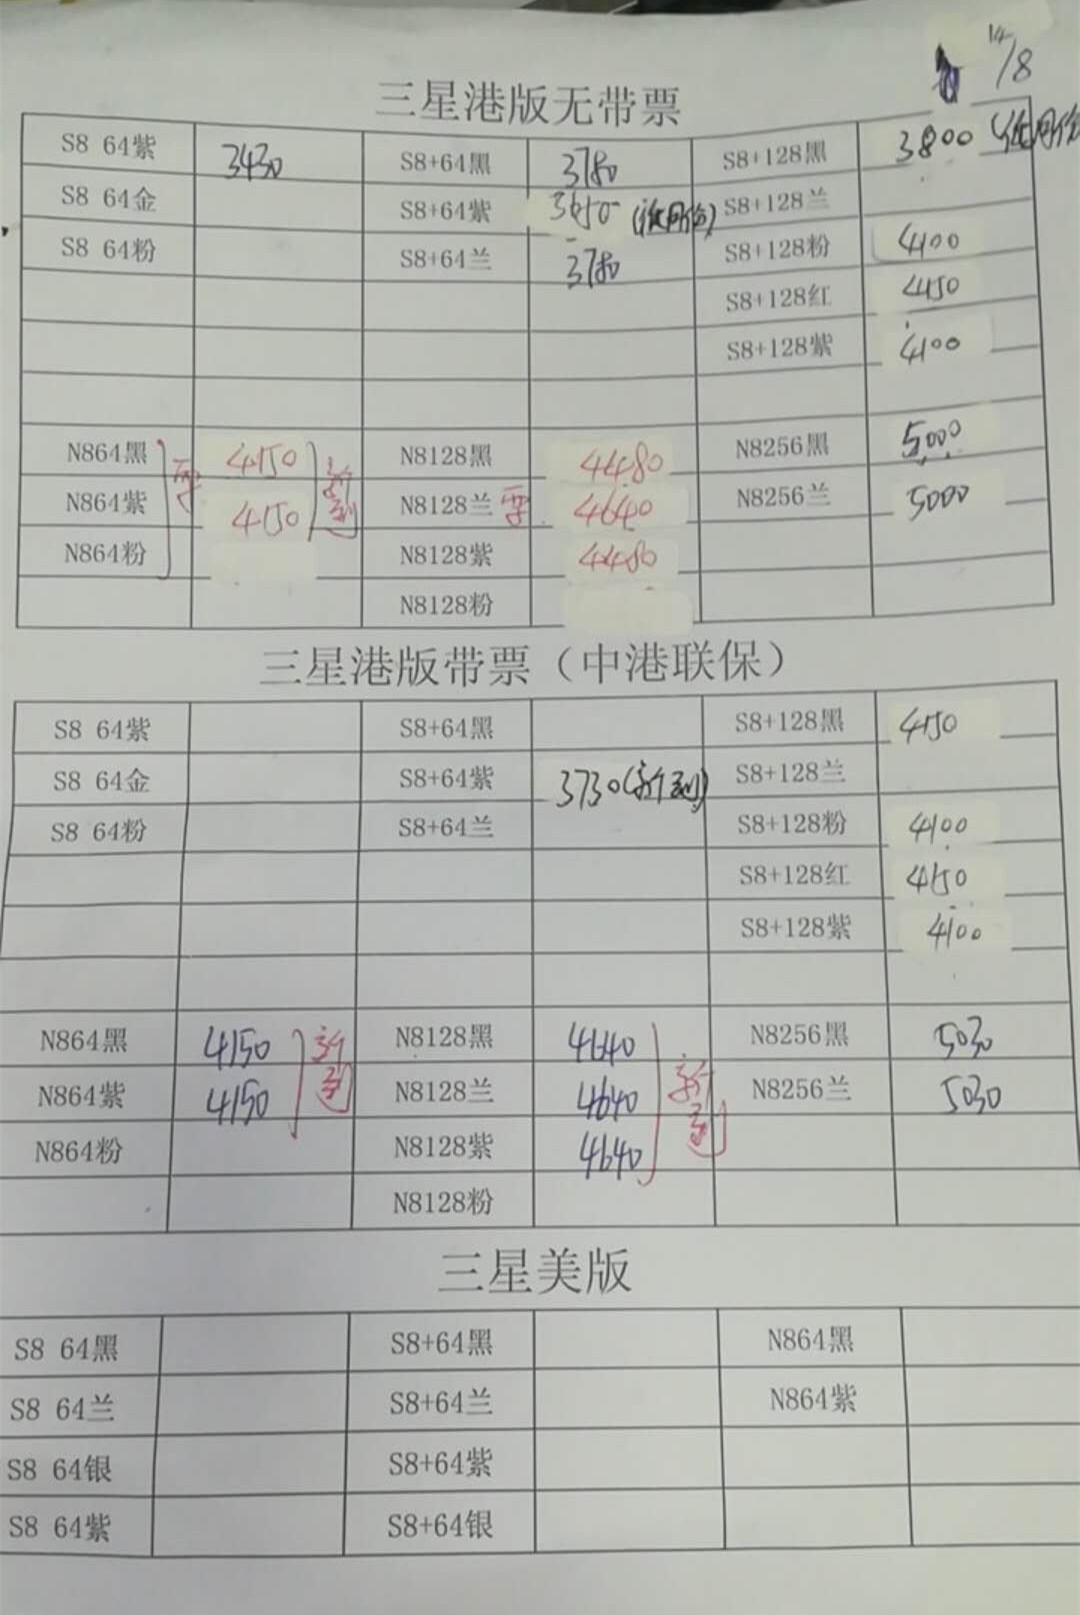 14/8
三星港版无带票
S8 64紫 3430 S8+64黑 3780 S8+128黑 3800
S8 64金 S8+64紫 3650 S8+128兰
S8 64粉 S8+64兰 3780 S8+128粉 4100
S8+128红 4150
S8+128紫 4100
N864黑 4150 N8128黑 4480 N8256黑 5000
N864紫 4150 新到 N8128兰 4640 N8256兰 5000
N864粉 N8128紫 4480
N8128粉
三星港版带票（中港联保）
S8 64紫 S8+64黑 S8+128黑 4150
S8 64金 S8+64紫 3730(新到) S8+128兰
S8 64粉 S8+64兰 S8+128粉 4100
S8+128红 4150
S8+128紫 4100
N864黑 4150 新到 N8128黑 4640 N8256黑 5030
N864紫 4150 N8128兰 4640 新到 N8256兰 5030
N864粉 N8128紫 4640
N8128粉
三星美版
S8 64黑 S8+64黑 N864黑
S8 64兰 S8+64兰 N864紫
S8 64银 S8+64紫
S8 64紫 S8+64银